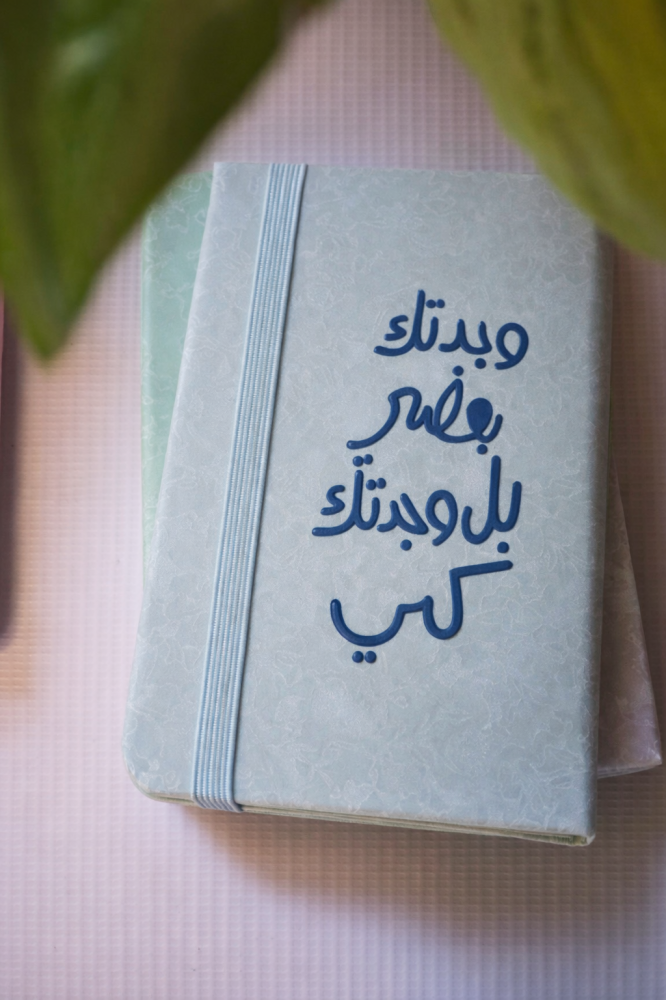 وجدتك
بعضي
بل وجدتك
كلي